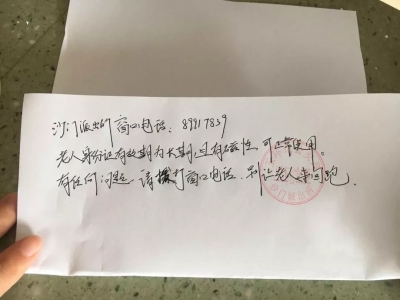 沙门派出所窗口电话:89917839
老人身份证有效期为长期,且有磁性,可正常使用。
有任何问题,请拨打窗口电话,别让老人来回跑。